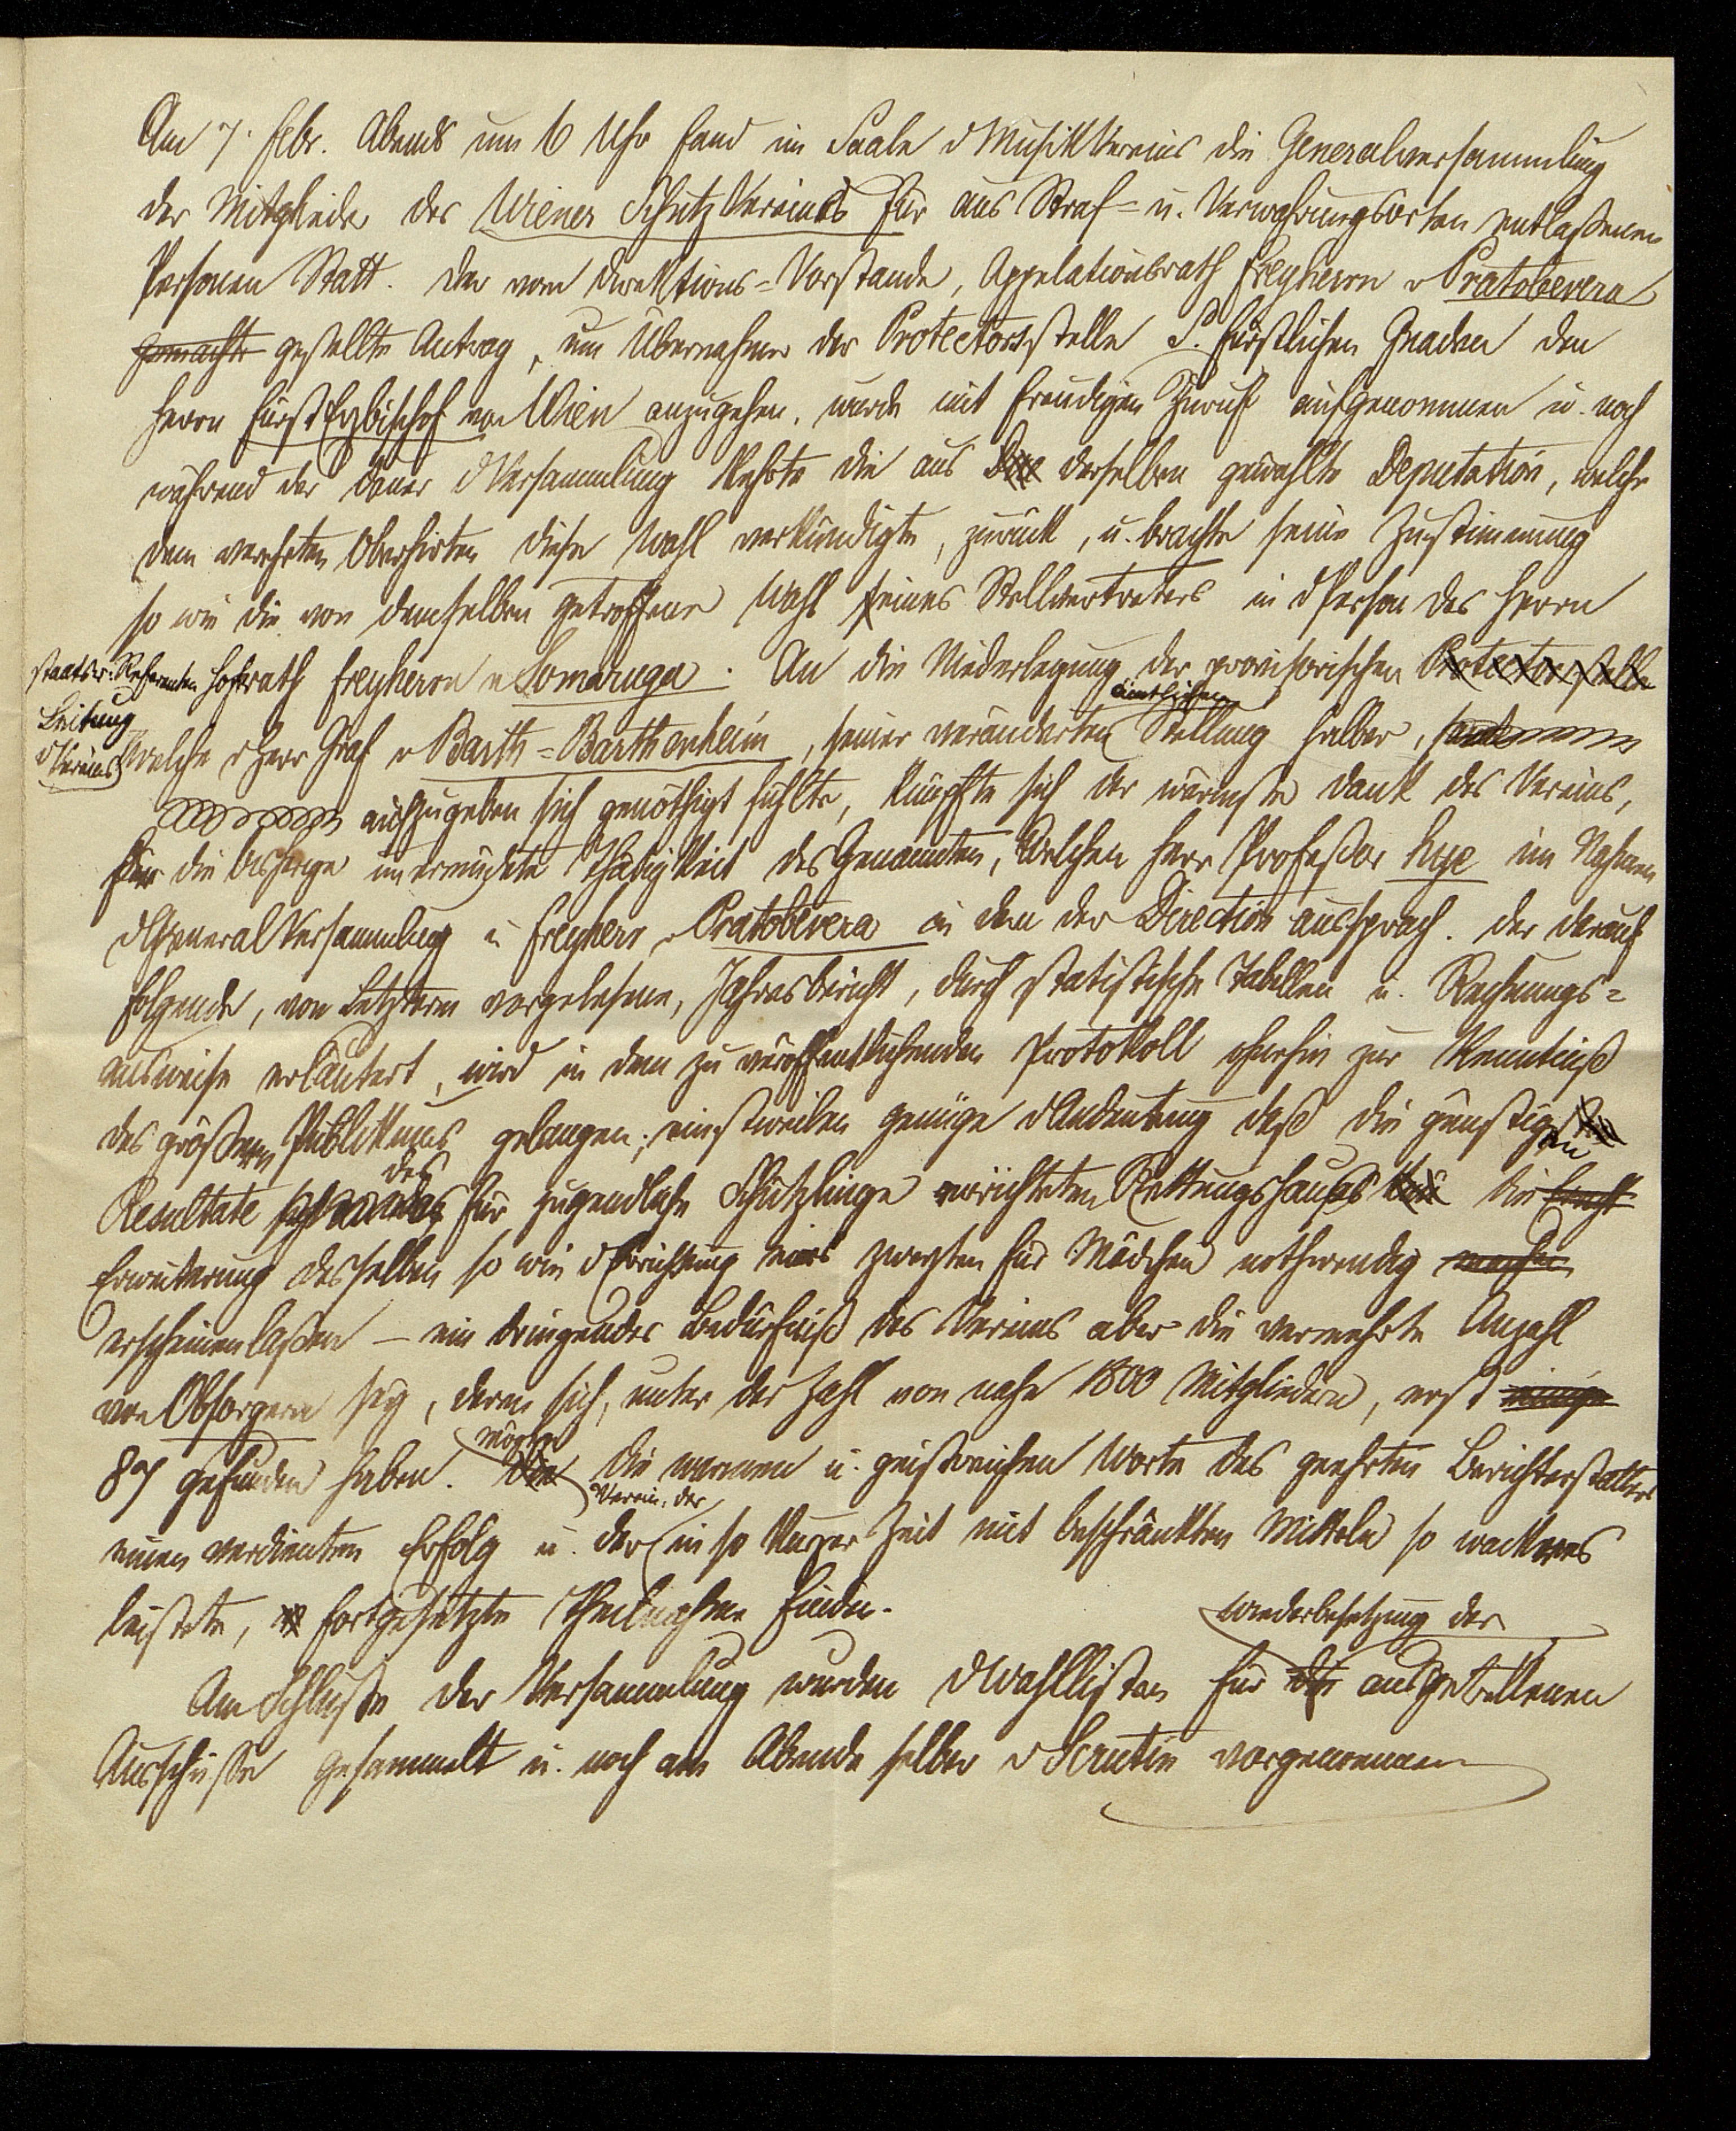 Am 7. Febr. Abends um 6 Uhr fand im Saale d MusikVereins die Generalversammlung
der Mitglieder des Wiener Schutz Vereines für aus Straf= u. Verwahrungsorten entlaßenen
Personen Statt. Der vom Direktions=Vorstande, Appelationsrath Freyherrn v Pratobevera
gemachte gestellte Antrag, um Übernahme der Protectorsstelle S. fürstlichen Gnaden den
Herrn FürstErzbischof von Wien anzugehen, wurde mit freudigem Zuruf aufgenommen u. noch
während der Dauer d Versammlung kehrte die aus derselben gewählte Deputation, welche
dem verehrten Oberhirten diese Wahl verkündigte, zurück, u. brachte seine Zustimmung
so wie die von demselben getroffene Wahl seines Stellvertreters in d Person des Herrn
staatsr. Referenten Hofrath Freyherrn v Somaruga. An die Niederlegung der provisorischen Protectorstelle
Leitung
d Vereins
ämtlichen
welche d Herr Graf v Barth=Barthenheim, seiner veränderten Stellung halber,
aufzugeben sich genöthigt fühlte, knüpfte sich der wärmste Dank des Vereins,
für die bisherige unermüdete Thätigkeit des Genannten, Welchen Herr Profeßor Hye im Nahmen
d General Versammlung u Freyherr v Pratobevera in dem der Direction aussprach. Der darauf
folgende, von Letzterm vorgelesene, Jahresbericht, durch statistische Tabellen u. Rechnungs=
ausweise erläutert, wird in dem zu veröffentlichenden Protokoll ohnehin zur Kenntniß
des größern Publikums gelangen; einstweilen genüge d Andeutung daß die günstigen
des
Resultate für jugendliche Schützlinge errichteten Rettungshauses die
Erweiterung desselben so wie d Errichtung eines zweyten für Mädchen nothwendig machen
erscheinen laßen – ein dringendes Bedürfniß des Vereins aber die vermehrte Anzahl
von Obsorgern sey, deren sich, unter der Zahl von nahe 1800 Mitgliedern, erst einige
möchten
87 gefunden haben. Die warmen u. geistreichen Worte des geehrten Berichterstatters
Verein, der
einen verdienten Erfolg u. der in so kurzer Zeit mit beschränkten Mitteln so wackeres
leistete, fortgesetzte Theilnahme finden.
Wiederbesetzung der
Am Schluße der Versammlung wurden d Wahllisten für die ausgetretenen
Ausschüsse gesammelt u. noch am Abende selber d Scrutin vorgenommen